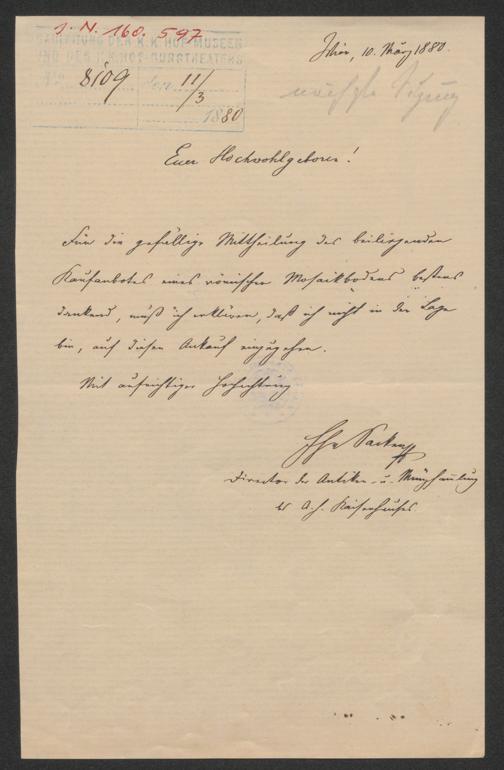 J. N. 160.597
K. K. HOF-MUSEEN
UND DES K. K. HOF-BURGTHEATERS
No 8109 den 11/3
1880
Wien, 10. März 1880.
nächste Sitzung
Euer Hochwohlgeboren!
Für die gefällige Mittheilung des beiliegenden
Kaufanbotes eines römischen Mosaikbodens bestens
dankend, muß ich erklären, daß ich nicht in der Lage
bin, auf diesen Ankauf einzugehen.
Mit aufrichtiger Hochachtung
Sacken
Director der Antiken- u. Münzsammlung
des a. h. Kaiserhauses.